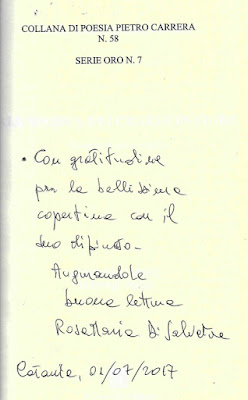 COLLANA DI POESIA PIETRO CARRERA
N. 58
SERIE ORO N. 7
• Con gratitudine
per la bellissima
copertina con il
suo dipinto-
Augurandole
buona lettura
RosaMaria Di Salvatore
Catania, 01/07/2017